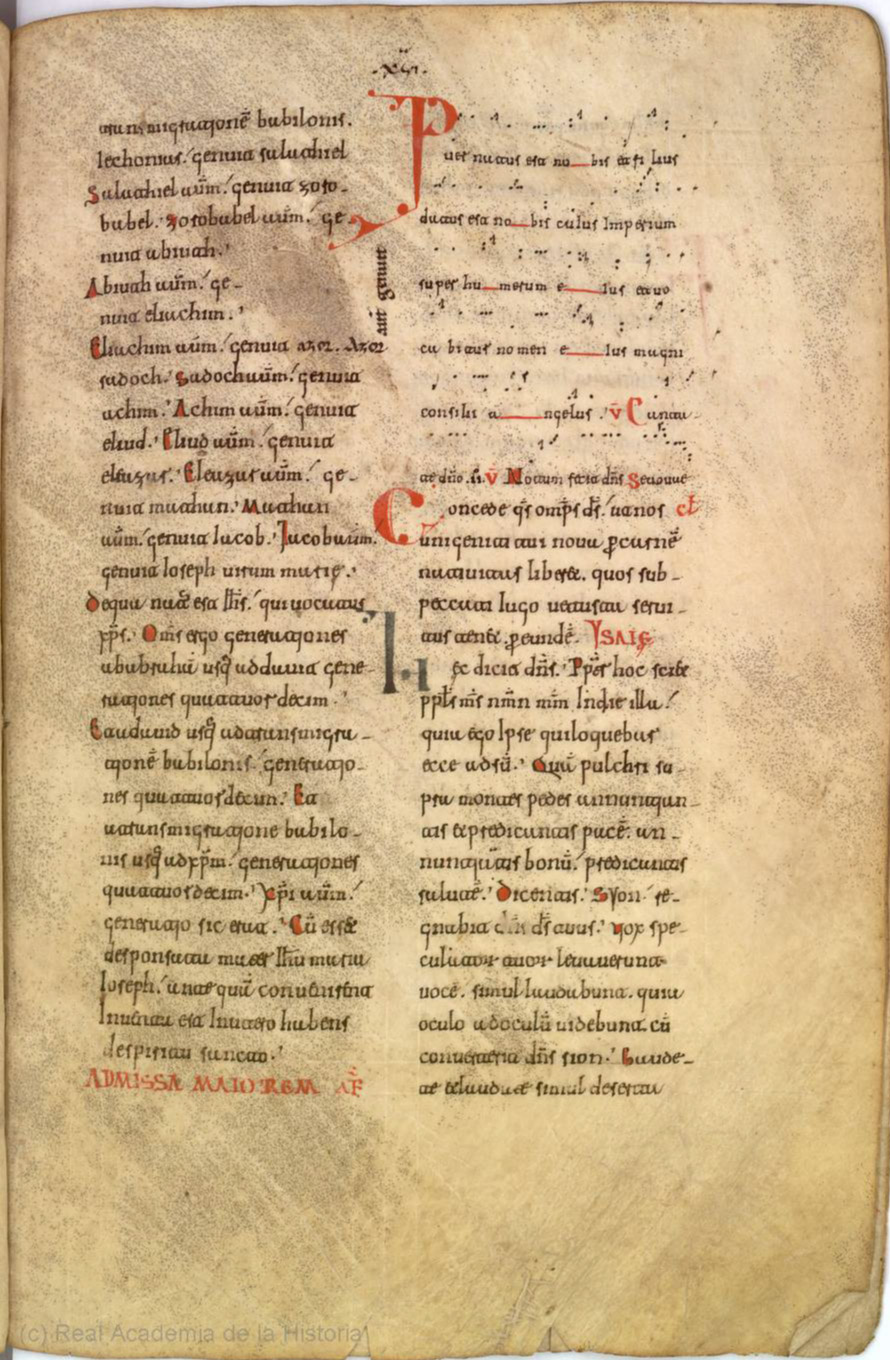 .xvi.
transmigrationē babilonis.
Iechonias. genuit salathiel
Salathiel aūm. genuit zoro-
babel. zorobabel aūm. ge-
nuit abiuth.
Abiuth aūm. ge-
nuit eliachim.
Eliachim aūm. genuit azor. Azor
aūt genuit
sadoch. Sadoch aūm. genuit
achim. Achim aūm. genuit
eliud. Eliud aūm. genuit
eleazar. Eleazar aūm. ge-
nuit mathan. Mathan
aūm. genuit Iacob. Iacob aūm.
genuit Ioseph uirum marie.
De qua nat est ihs. qui uocatur
xps. Oms ergo generationes
ab abraham usq ad dauid gene-
rationes quatuordecim.
Et a dauid usq ad transmigra-
tionē babilonis. generatio-
nes quatuordecim. Et
a transmigratione babilo-
nis usq ad xpm. generationes
quatuordecim. Xpi aūm.
generatio sic erat. Cū esset
desponsata mater Ihu maria
Ioseph. antequā conuenirent
Inuenta est In utero habens
de spiritu sancto.
AD MISSA MAIOREM
Puer natus est no bis et fi lius
datus est no bis cuius Imperium
super hu merum e Ius et uo
ca bitur nomen e Ius magni
consilii a ngelus. V Canta-
te dño. V Notum fecit dñs
Concede qs omps ds. ut nos
unigeniti tui noua p carnē
natiuitas liberet. quos sub
peccati Iugo uetusta serui-
tus tenet. p eundē. YSAIE
Hec dicit dñs. Ppter hoc sciet
ppls ms nmn mm In die illa.
quia ego Ipse qui loquebar
ecce adsū. Quā pulchri su-
pra montes pedes annuntian-
tis et predicantis pacē. an-
nuntiantis bonū. predicantis
salutē. Dicentis. Syon re-
gnabit ds tuus. uox spe-
culatorum tuorum leuauerunt
uocē. simul laudabunt. quia
oculo ad oculū uidebunt. cū
conuerterit dñs sion. Gaude-
te et laudate simul deserta